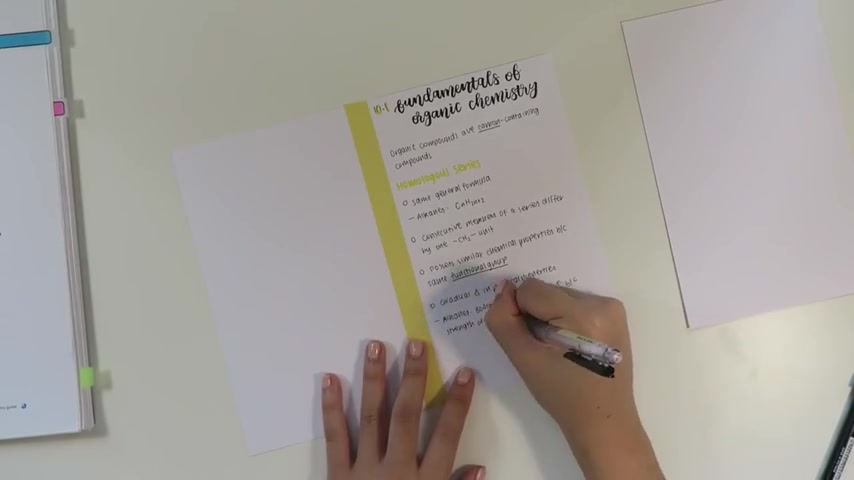 10.1 fundamentals of
organic chemistry
Organic compounds are carbon-containing
compounds
Homologous Series
○ same general formula
- Alkanes: CnH2n+2
○ consecutive members of a series differ
by one -CH2- unit
○ possess similar chemical properties b/c
same functional group
○ Gradual Δ in
- Alkanes: b/c
strength